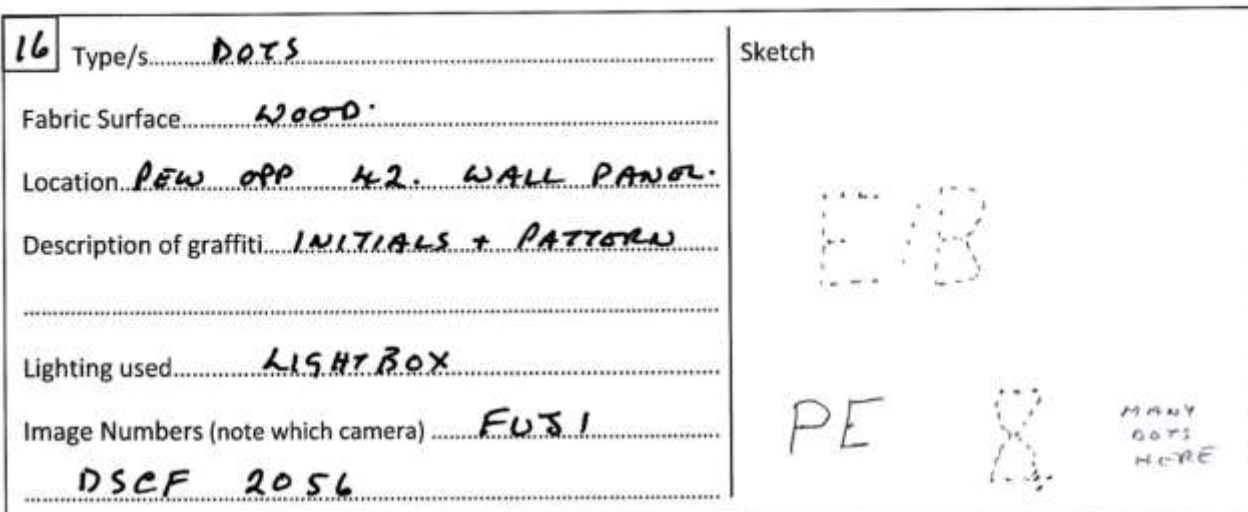 16 Type/s DOTS
Fabric Surface WOOD.
Location PEW OPP 42. WALL PANEL.
Description of graffiti INITIALS + PATTERN
Lighting used LIGHTBOX
Image Numbers (note which camera) FUJI
DSCF 2056
Sketch
E/B
PE
MANY
DOTS
HERE